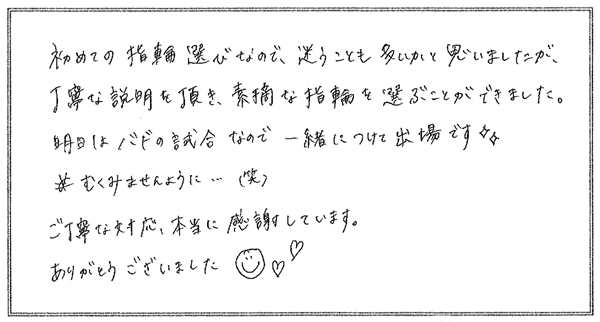 初めての指輪選びなので、迷うことも多いかと思いましたが、
丁寧な説明を頂き、素摘な指輪を選ぶことができました。
明日はバドの試合なので一緒につけて出場です✧✧
#むくみませんように…(笑)
ご丁寧な対応、本当に感謝しています。
ありがとうございました☺♡♡